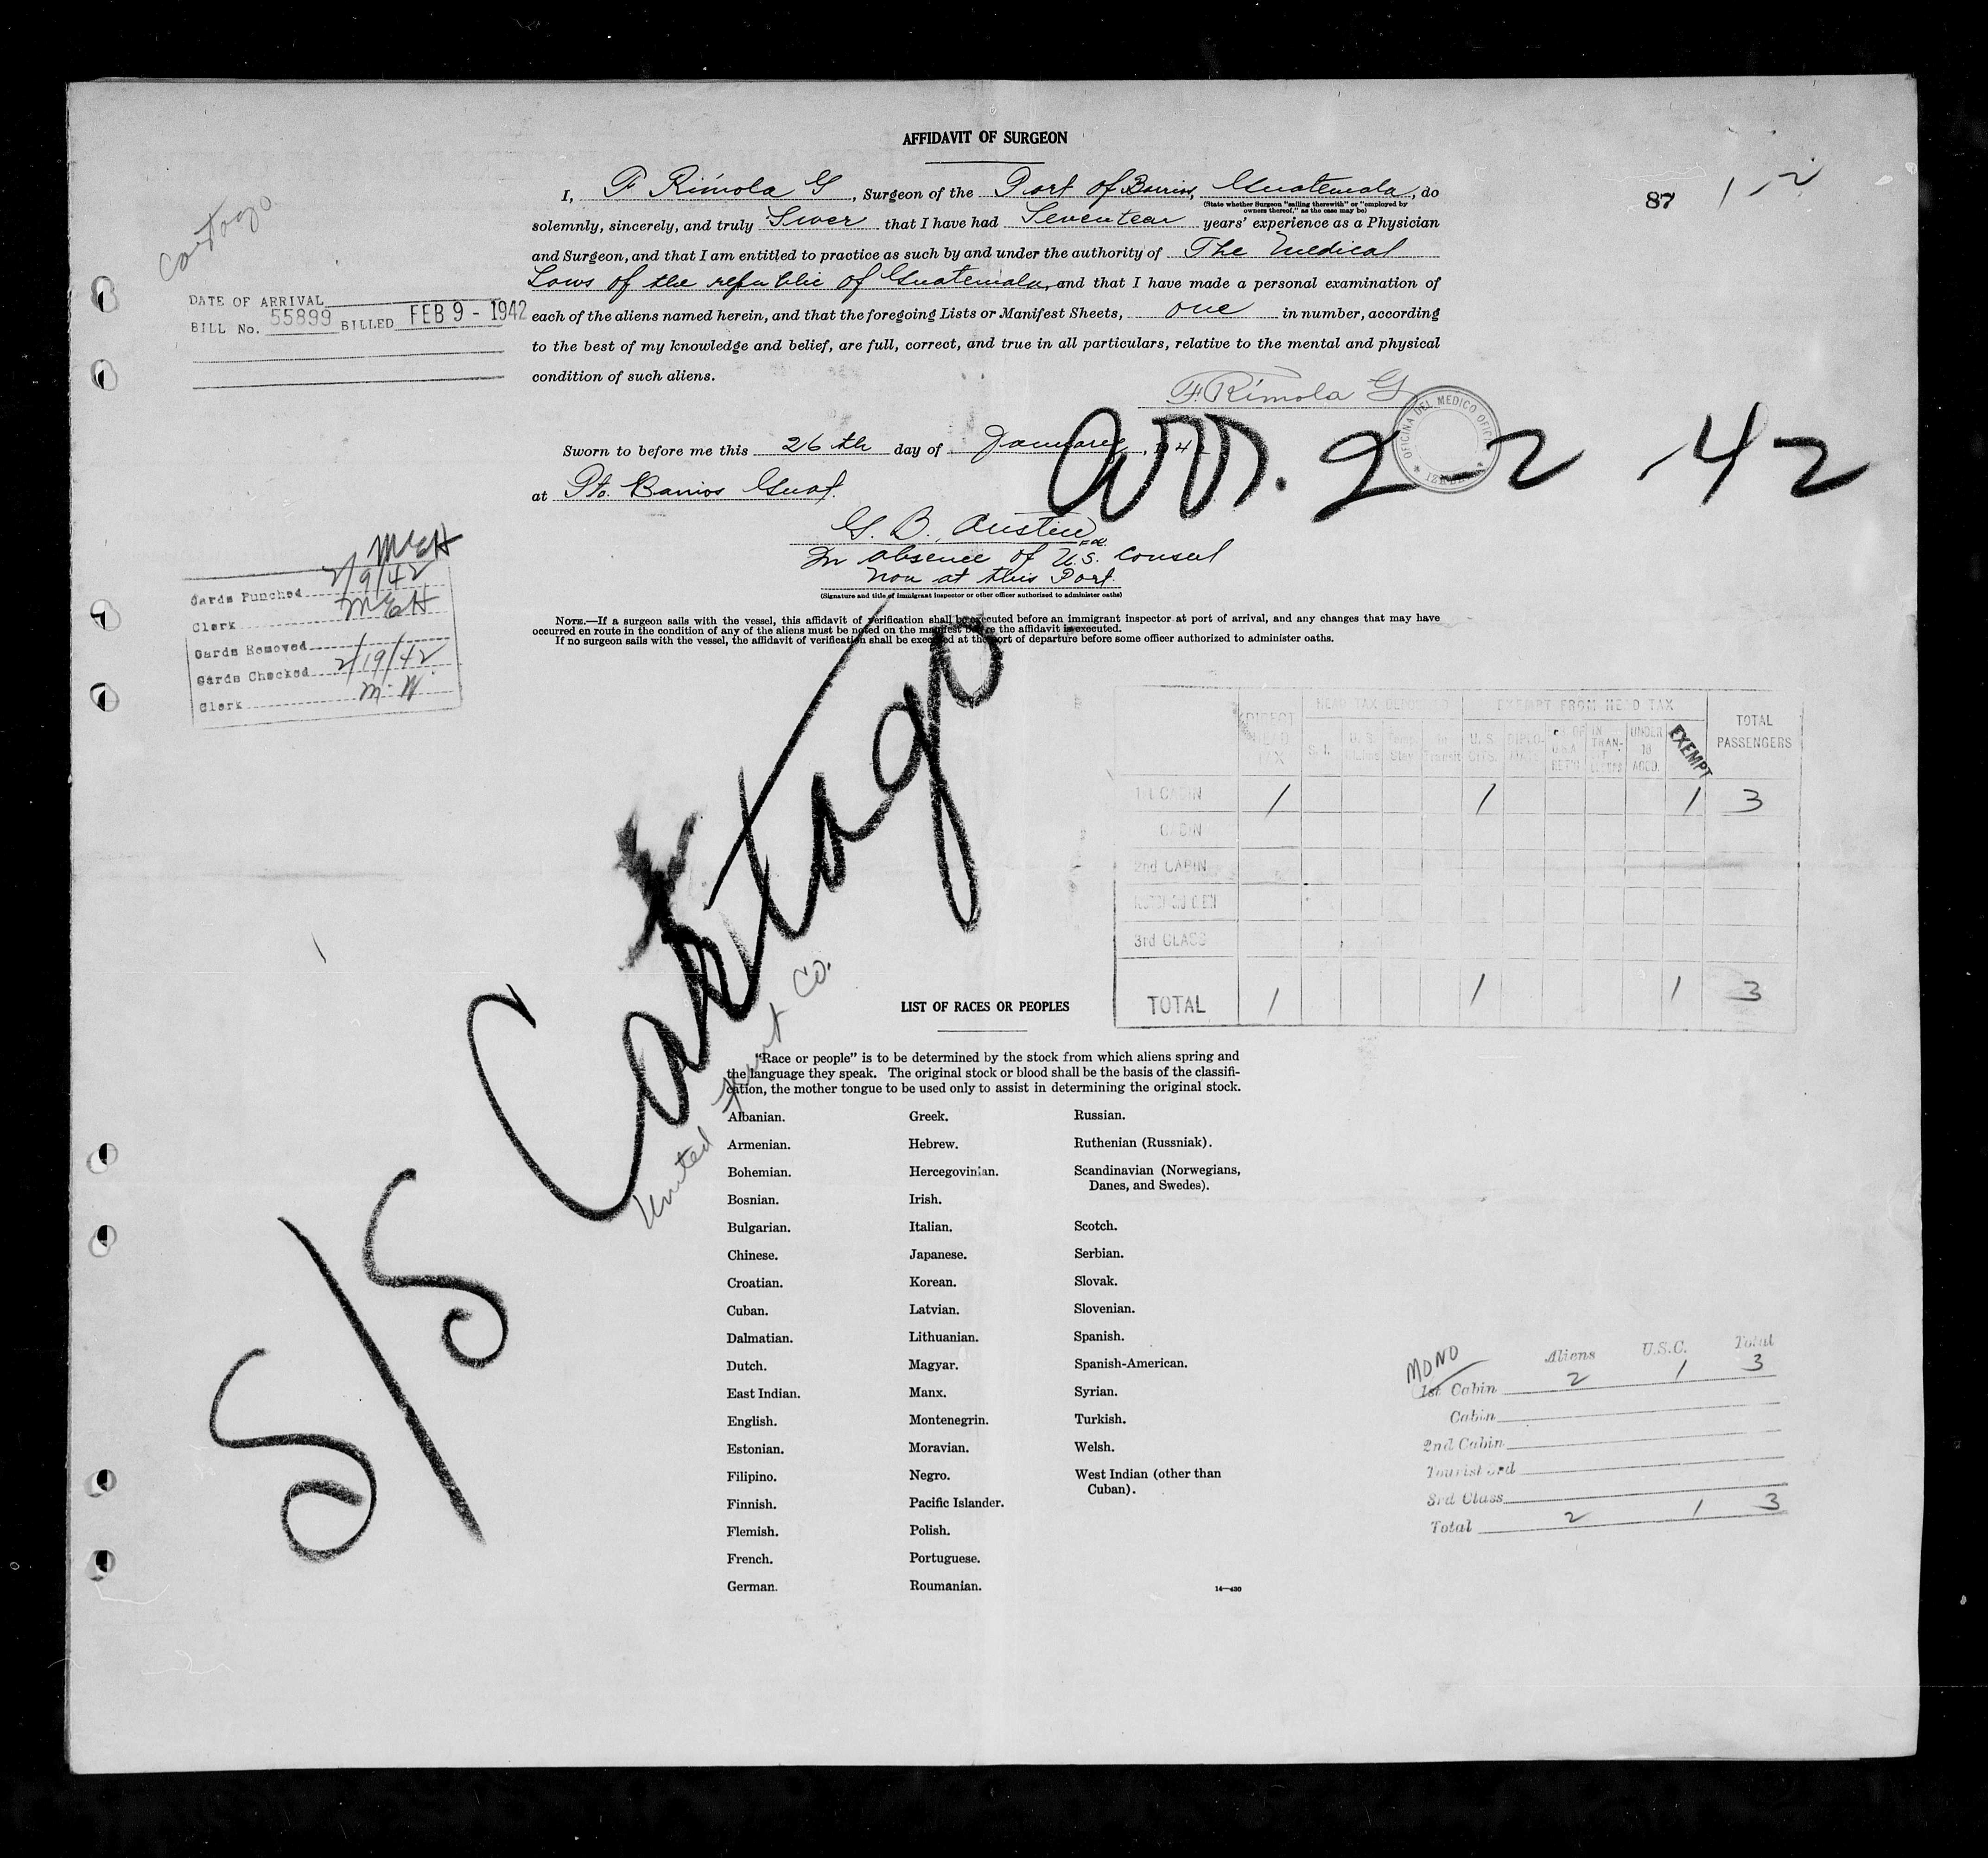 AFFIDAVIT OF SURGEON
I, F Rimola G, Surgeon of the Port of Barrios, Guatemala, do
(State whether Surgeon "sailing therewith" or "employed by
owners thereof," as the case may be)
solemnly, sincerely, and truly Swer that I have had Seventeen years' experience as a Physician
and Surgeon, and that I am entitled to practice as such by and under the authority of The Medical
Laws of the republic of Guatemala, and that I have made a personal examination of
each of the aliens named herein, and that the foregoing Lists or Manifest Sheets, one in number, according
to the best of my knowledge and belief, are full, correct, and true in all particulars, relative to the mental and physical
condition of such aliens.
F. Rimola G
Sworn to before me this 26th day of January, 194
at Pto. Barrios Guat.
G. B. Austin
In absence of U.S. Consul
non at this Port
(Signature and title of immigrant inspector or other officer authorized to administer oaths)
NOTE.—If a surgeon sails with the vessel, this affidavit of verification shall be executed before an immigrant inspector at port of arrival, and any changes that may have
occurred en route in the condition of any of the aliens must be noted on the manifest before the affidavit is executed.
If no surgeon sails with the vessel, the affidavit of verification shall be executed at the port of departure before some officer authorized to administer oaths.
87 1-2
Cartago
DATE OF ARRIVAL
BILL No. 55899 BILLED FEB 9 - 1942
OFICINA DEL MEDICO
arr. 2-2-42
MEH
Cards Punched 2/9/42
Clerk MEH
Cards Removed
Cards Checked 2/19/42
Clerk M. W.
S/S Cartago
United Fruit Co.
DIRECT HEAD TAX
HEAD TAX DEPOSITED
EXEMPT FROM HEAD TAX
TOTAL PASSENGERS
S. I.
U. S. Claims
Temp. Stay
In Transit
U. S. CITS.
DIPLO-MATS
IN TRAN-
UNDER 16 ACCD.
EXEMPT
1st CABIN 1 1 1 3
CABIN
2nd CABIN
3rd CLASS
TOTAL 1 1 1 3
LIST OF RACES OR PEOPLES
"Race or people" is to be determined by the stock from which aliens spring and
the language they speak. The original stock or blood shall be the basis of the classifi-
cation, the mother tongue to be used only to assist in determining the original stock.
Albanian.
Armenian.
Bohemian.
Bosnian.
Bulgarian.
Chinese.
Croatian.
Cuban.
Dalmatian.
Dutch.
East Indian.
English.
Estonian.
Filipino.
Finnish.
Flemish.
French.
German.
Greek.
Hebrew.
Hercegovinian.
Irish.
Italian.
Japanese.
Korean.
Latvian.
Lithuanian.
Magyar.
Manx.
Montenegrin.
Moravian.
Negro.
Pacific Islander.
Polish.
Portuguese.
Roumanian.
Russian.
Ruthenian (Russniak).
Scandinavian (Norwegians,
Danes, and Swedes).
Scotch.
Serbian.
Slovak.
Slovenian.
Spanish.
Spanish-American.
Syrian.
Turkish.
Welsh.
West Indian (other than
Cuban).
14—430
MONO
Aliens U.S.C. Total
1st Cabin 2 1 3
Cabin
2nd Cabin
Tourist 3rd
3rd Class
Total 2 1 3